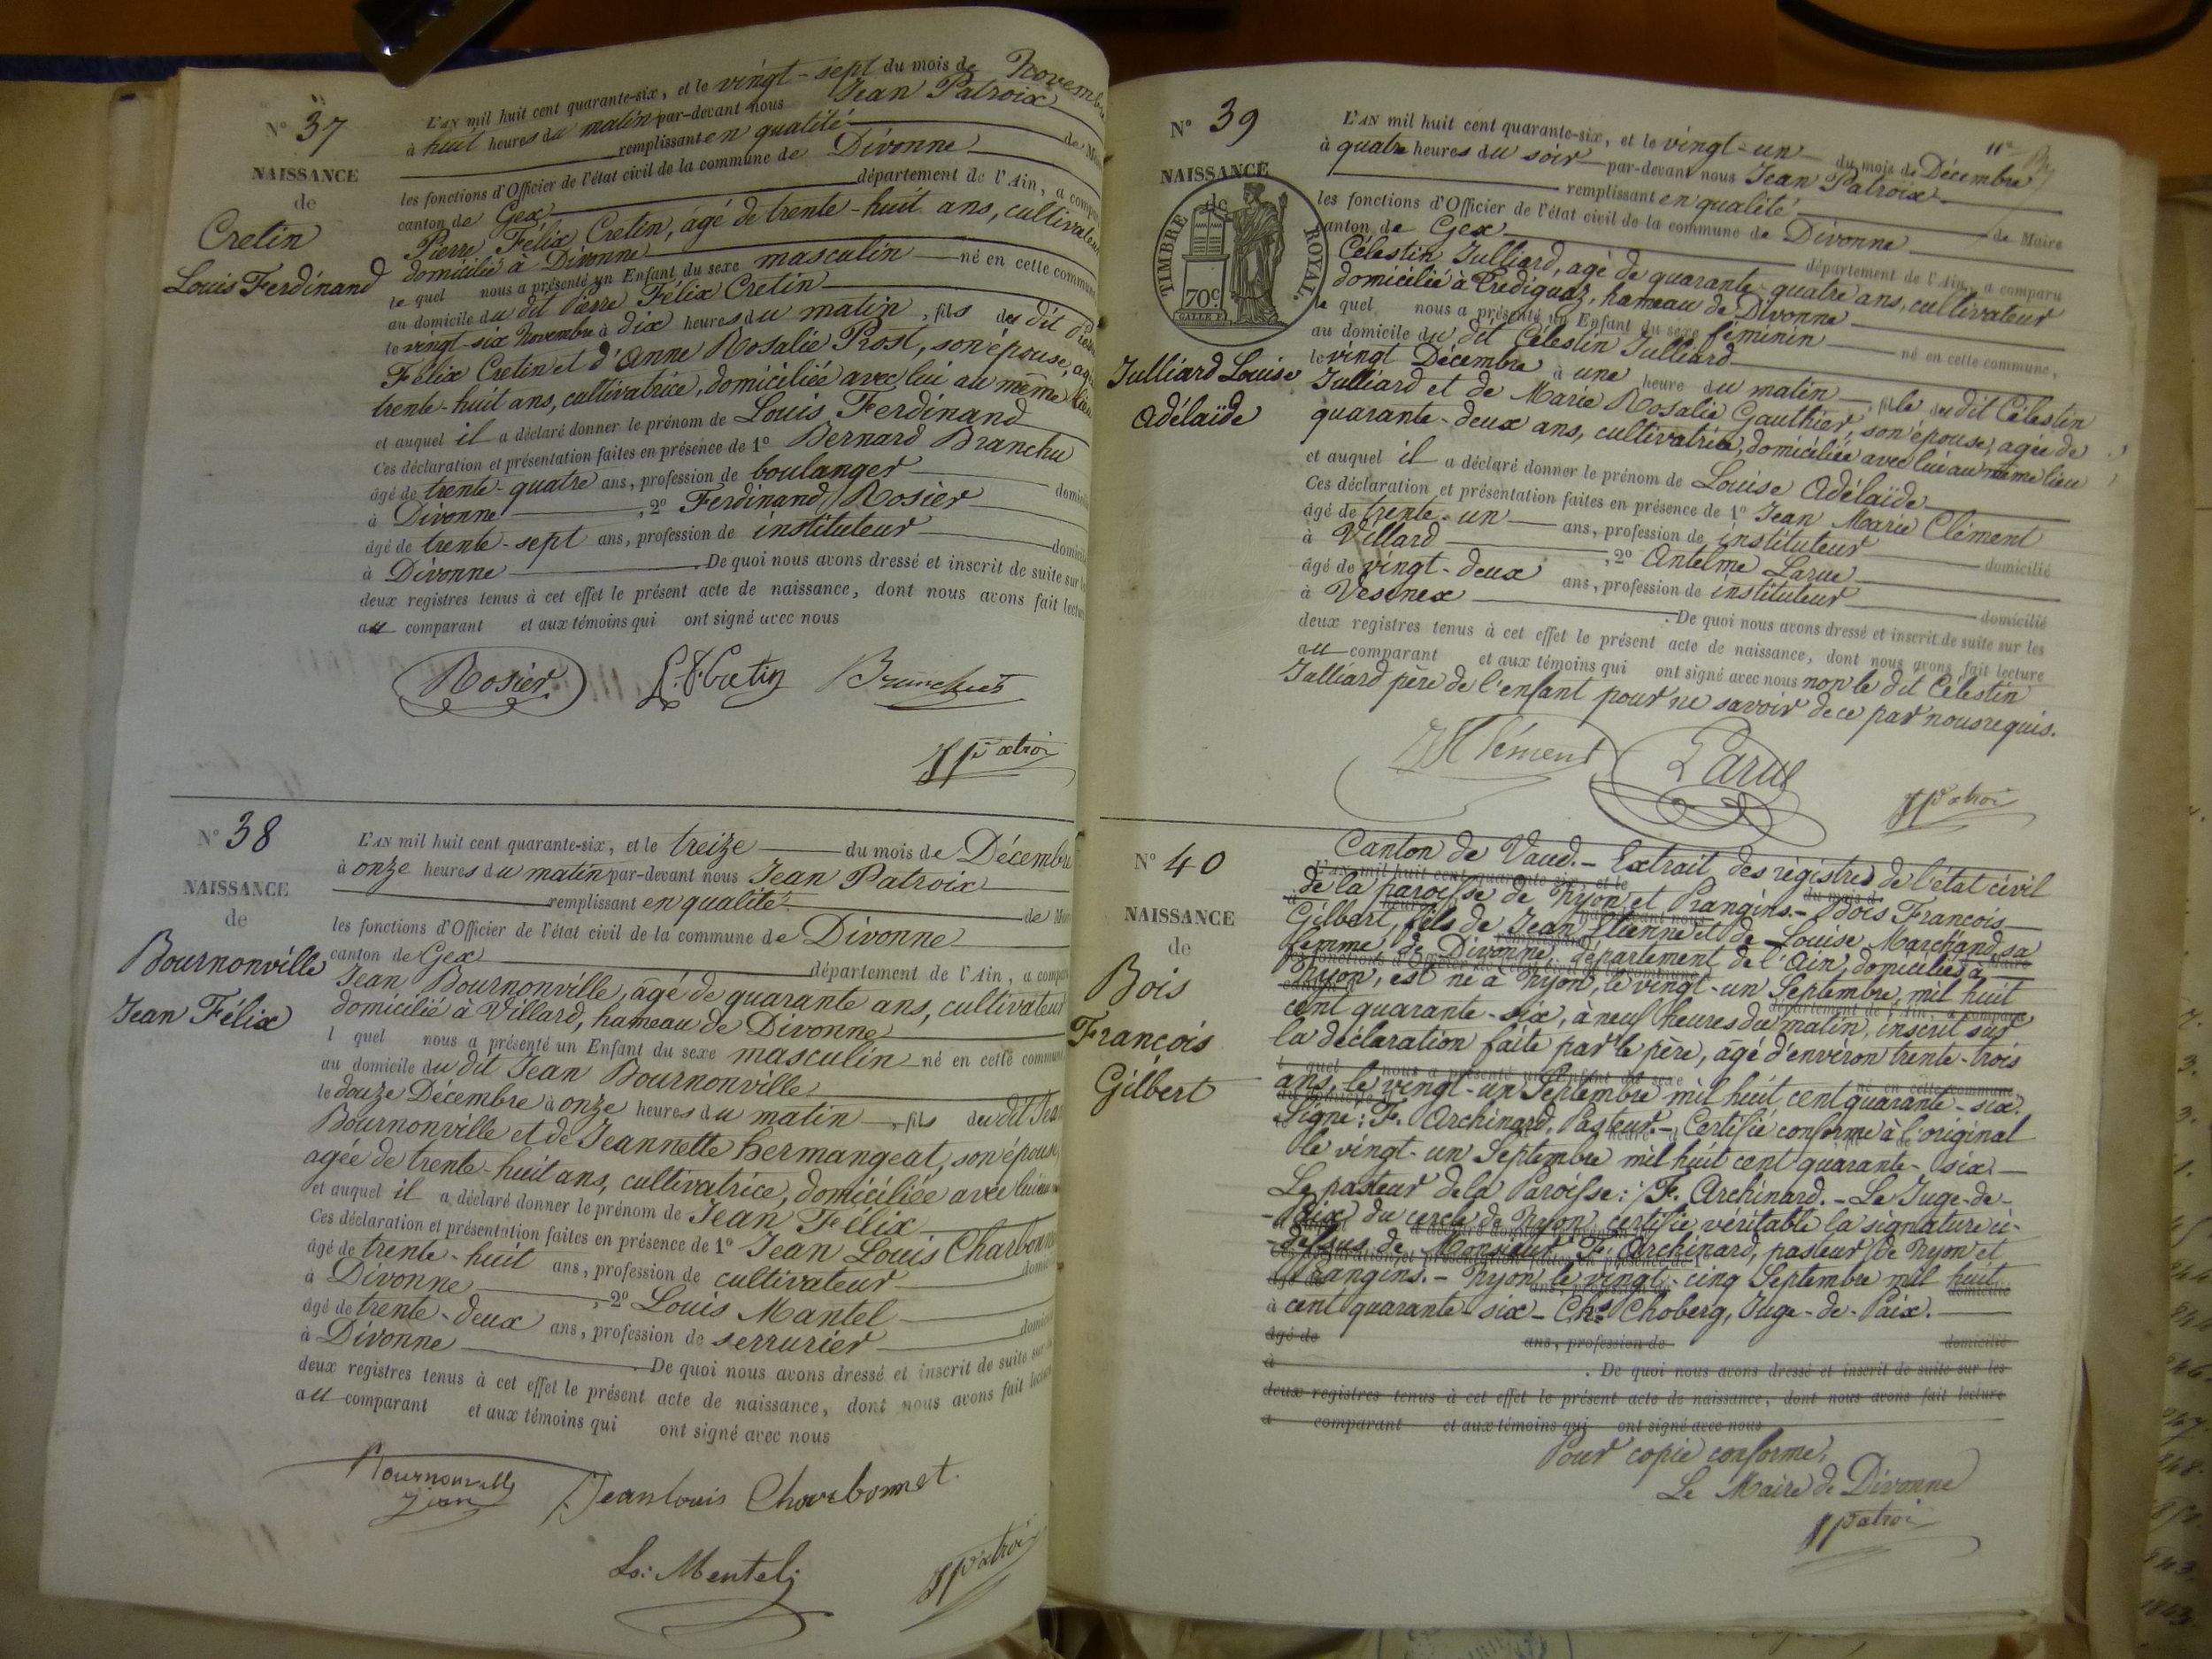 N° 37
NAISSANCE
de
Cretin
Louis Ferdinand
L'AN mil huit cent quarante-six, et le vingt-sept du mois de Novembre
à huit heures du matin par-devant nous Jean Patroix
remplissant en qualité de
les fonctions d'Officier de l'état civil de la commune de Divonne
canton de Gex département de l'Ain, a
Pierre Félix Cretin, agé de trente-huit ans, cultivateur
domicilié à Divonne
le quel nous a présenté un Enfant du sexe masculin né en cette commune
au domicile du dit Pierre Félix Cretin
le vingt-six Novembre à dix heures du matin, fils du dit
Félix Cretin et d'Anne Rosalie Prost, son épouse,
trente-huit ans, cultivatrice, domiciliée avec lui au même lieu
et auquel il a déclaré donner le prénom de Louis Ferdinand
Ces déclaration et présentation faites en présence de 1° Bernard Branchu
âgé de trente-quatre ans, profession de boulanger
à Divonne, 2° Ferdinand Rosier
âgé de trente-sept ans, profession de instituteur
à Divonne. De quoi nous avons dressé et inscrit de suite sur
deux registres tenus à cet effet le présent acte de naissance, dont nous avons fait
au comparant et aux témoins qui ont signé avec nous
Rosier
N° 38
NAISSANCE
de
Bournonville
Jean Félix
L'AN mil huit cent quarante-six, et le treize du mois de Décembre
à onze heures du matin par-devant nous Jean Patroix
remplissant en qualité de
les fonctions d'Officier de l'état civil de la commune de Divonne
canton de Gex département de l'Ain, a
Jean Bournonville, agé de quarante ans, cultivateur
domicilié à Villard, hameau de Divonne
l quel nous a présenté un Enfant du sexe masculin né en cette commune
au domicile du dit Jean Bournonville
le douze Décembre à onze heures du matin, fils du dit Jean
Bournonville et de Jeannette hermangeat, son épouse,
agée de trente-huit ans, cultivatrice, domiciliée avec lui
et auquel il a déclaré donner le prénom de Jean Félix
Ces déclaration et présentation faites en présence de 1° Jean Louis
âgé de trente-huit ans, profession de cultivateur
à Divonne, 2° Louis Mantel
âgé de trente-deux ans, profession de serrurier
à Divonne. De quoi nous avons dressé et inscrit de suite
deux registres tenus à cet effet le présent acte de naissance, dont nous avons fait
au comparant et aux témoins qui ont signé avec nous
Bournonville
Jean
Jean Louis Charbonnet
Ls: Mentel
N° 39
NAISSANCE
de
TIMBRE ROYAL.
70c
Julliard Louise
Adélaïde
L'AN mil huit cent quarante-six, et le vingt-un du mois de Décembre
à quatre heures du soir par-devant nous Jean Patroix
remplissant en qualité de Maire
les fonctions d'Officier de l'état civil de la commune de Divonne
canton de Gex département de l'Ain, a comparu
Célestin Julliard, agé de quarante-quatre ans, cultivateur
domicilié à hameau de Divonne
le quel nous a présenté un Enfant du sexe féminin né en cette commune,
au domicile du dit Célestin Julliard
le vingt Décembre à une heure du matin, fille du dit Célestin
Julliard et de Marie Rosalie Gauthier, son épouse, agée de
quarante-deux ans, cultivatrice, domiciliée avec lui au même lieu
et auquel il a déclaré donner le prénom de Louise Adélaïde
Ces déclaration et présentation faites en présence de 1° Jean Marie Clément
âgé de trente-un ans, profession de instituteur domicilié
à Villard, 2° Antelme Larue
âgé de vingt-deux ans, profession de instituteur domicilié
à Vesenex. De quoi nous avons dressé et inscrit de suite sur les
deux registres tenus à cet effet le présent acte de naissance, dont nous avons fait lecture
au comparant et aux témoins qui ont signé avec nous non le dit Célestin
Julliard père de l'enfant pour ne savoir de ce par nous requis.
Clément
Larue
N° 40
NAISSANCE
de
Bois
François
Gilbert
Canton de Vaud. - Extrait des régistres de l'état civil
de la paroisse de Nyon et Prangins. - Bois François
Gilbert, fils de Jean Etienne et de Louise Marchand, sa
femme, de Divonne, département de l'Ain, domiciliés à
Nyon, est né à Nyon, le vingt-un Septembre, mil huit
cent quarante-six, à neuf heures du matin, inscrit sur
la déclaration faite par le père, âgé d'environ trente-trois
ans, le vingt-un Septembre mil huit cent quarante-six.
Signé: F. Archinard, Pasteur. - Certifié conforme à l'original
le vingt-un Septembre mil huit cent quarante-six.
Le pasteur de la Paroisse: F. Archinard. - Le Juge-de-
-Paix du cercle de Nyon, certifie véritable la signature ci-
-dessus de Monsieur F. Archinard, pasteur de Nyon et
Prangins. - Nyon le vingt-cinq Septembre mil huit
à cent quarante-six - Chs Choberg, Juge-de-Paix.
âgé de ans, profession de domicilié
à. De quoi nous avons dressé et inscrit de suite sur les
deux registres tenus à cet effet le présent acte de naissance, dont nous avons fait lecture
a comparant et aux témoins qui ont signé avec nous
Pour copie conforme,
Le Maire de Divonne